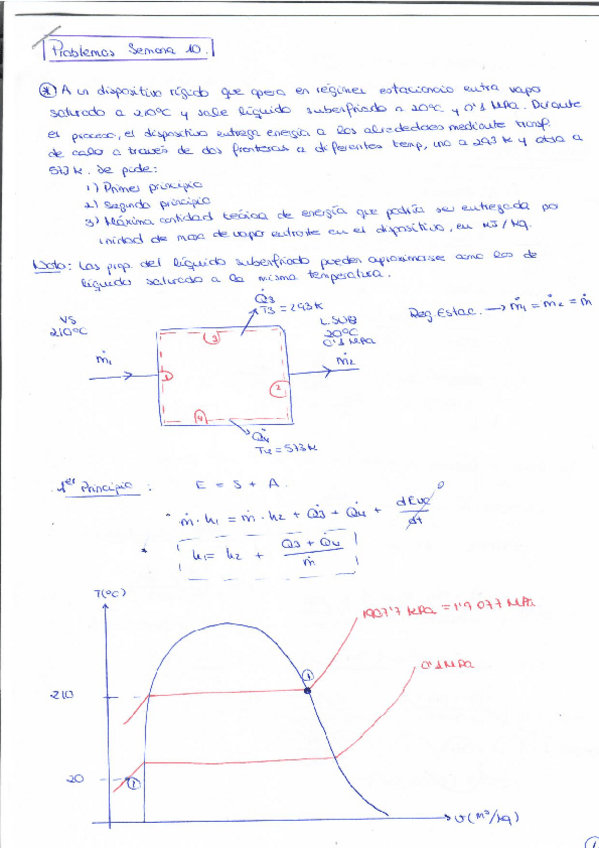 Problemas Semana 10.
* A un dispositivo rígido que opera en régimen estacionario entra vapor
saturado a 210ºC y sale líquido subenfriado a 20ºC y 0'1 MPa. Durante
el proceso, el dispositivo entrega energía a los alrededores mediante transf.
de calor a través de dos fronteras a diferentes temp, una a 293 K y otra a
573 K. Se pide:
1) Primer principio
2) Segundo principio
3) Máxima cantidad teórica de energía que podría ser entregada por
unidad de masa de vapor entrante en el dispositivo, en MJ/kg.
Nota: Las prop. del líquido subenfriado pueden aproximarse como los de
líquido saturado a la misma temperatura.
Q̇3
T3 = 293 K
Reg. Estac. → ṁ1 = ṁ2 = ṁ
VS
210ºC
L. SUB
20ºC
0'1 MPa
ṁ1
ṁ2
3
1
2
4
Q̇4
T4 = 573 K
1er Principio: E = S + A.
ṁ · h1 = ṁ · h2 + Q̇3 + Q̇4 + dEvc/dt 0
* h1 = h2 + Q̇3 + Q̇4 / ṁ
T(ºC)
1907'7 KPa = 1'9077 MPa
0'1 MPa
1
210
20
2
v (m³/kg)
1